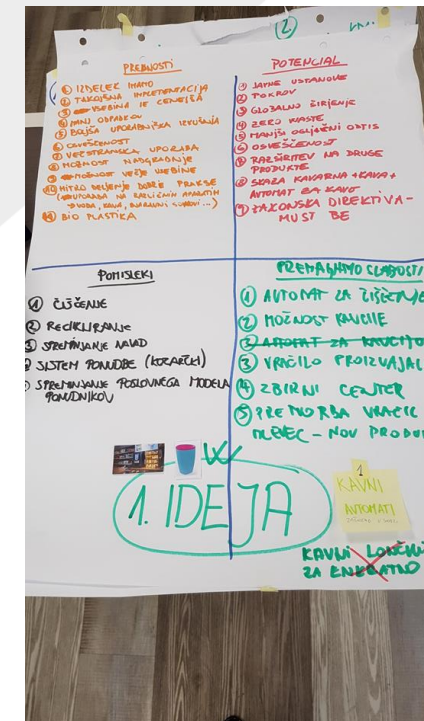 2
PREDNOSTI
① IZDELEK IMAMO
② TAKOJŠNA IMPLEMENTACIJA
③ VSEBINA JE CENEJŠA
④ MANJ ODPADKOV
⑤ BOLJŠA UPORABNIŠKA IZKUŠNJA
⑥ OSVEŠČENOST
⑦ VEČSTRANSKA UPORABA
⑧ MOŽNOST NADGRADNJE
⑨ MOŽNOST VEČJE VSEBINE
⑩ HITRO DELJENJE DOBRE PRAKSE
(UPORABA NA RAZLIČNIH APARATIH
- VODA, KAVA, NARAVNI SOKOVI...)
⑪ BIO PLASTIKA
POTENCIAL
① JAVNE USTANOVE
② POKROV
③ GLOBALNO ŠIRJENJE
④ ZERO WASTE
⑤ MANJŠI OGLJIČNI ODTIS
⑥ OSVEŠČENOST
RAZŠIRITEV NA DRUGE
PRODUKTE
KAVARNA + KAVA +
AVTOMAT ZA KAVO
⑨ ZAKONSKA DIREKTIVA -
MUST BE
POMISLEKI
① ČIŠČENJE
② RECIKLIRANJE
③ SPREMINJANJE NAVAD
SISTEM PONUDBE (KOZARČKI)
SPREMINJANJE POSLOVNEGA MODELA
PONUDNIKOV
PREMAGAJMO SLABOSTI
① AVTOMAT ZA ČIŠČENJE
② MOŽNOST KAVCIJE
③ AVTOMAT ZA KAVCIJO
③ VRAČILO PROIZVAJAL
④ ZBIRNI CENTER
⑤ PREDMORBA VRAČIL
MLEVEC - NOV PRODU
1. IDEJA
1
KAVNI
AVTOMATI
KAVNI LONČKI
ZA ENKRATNO